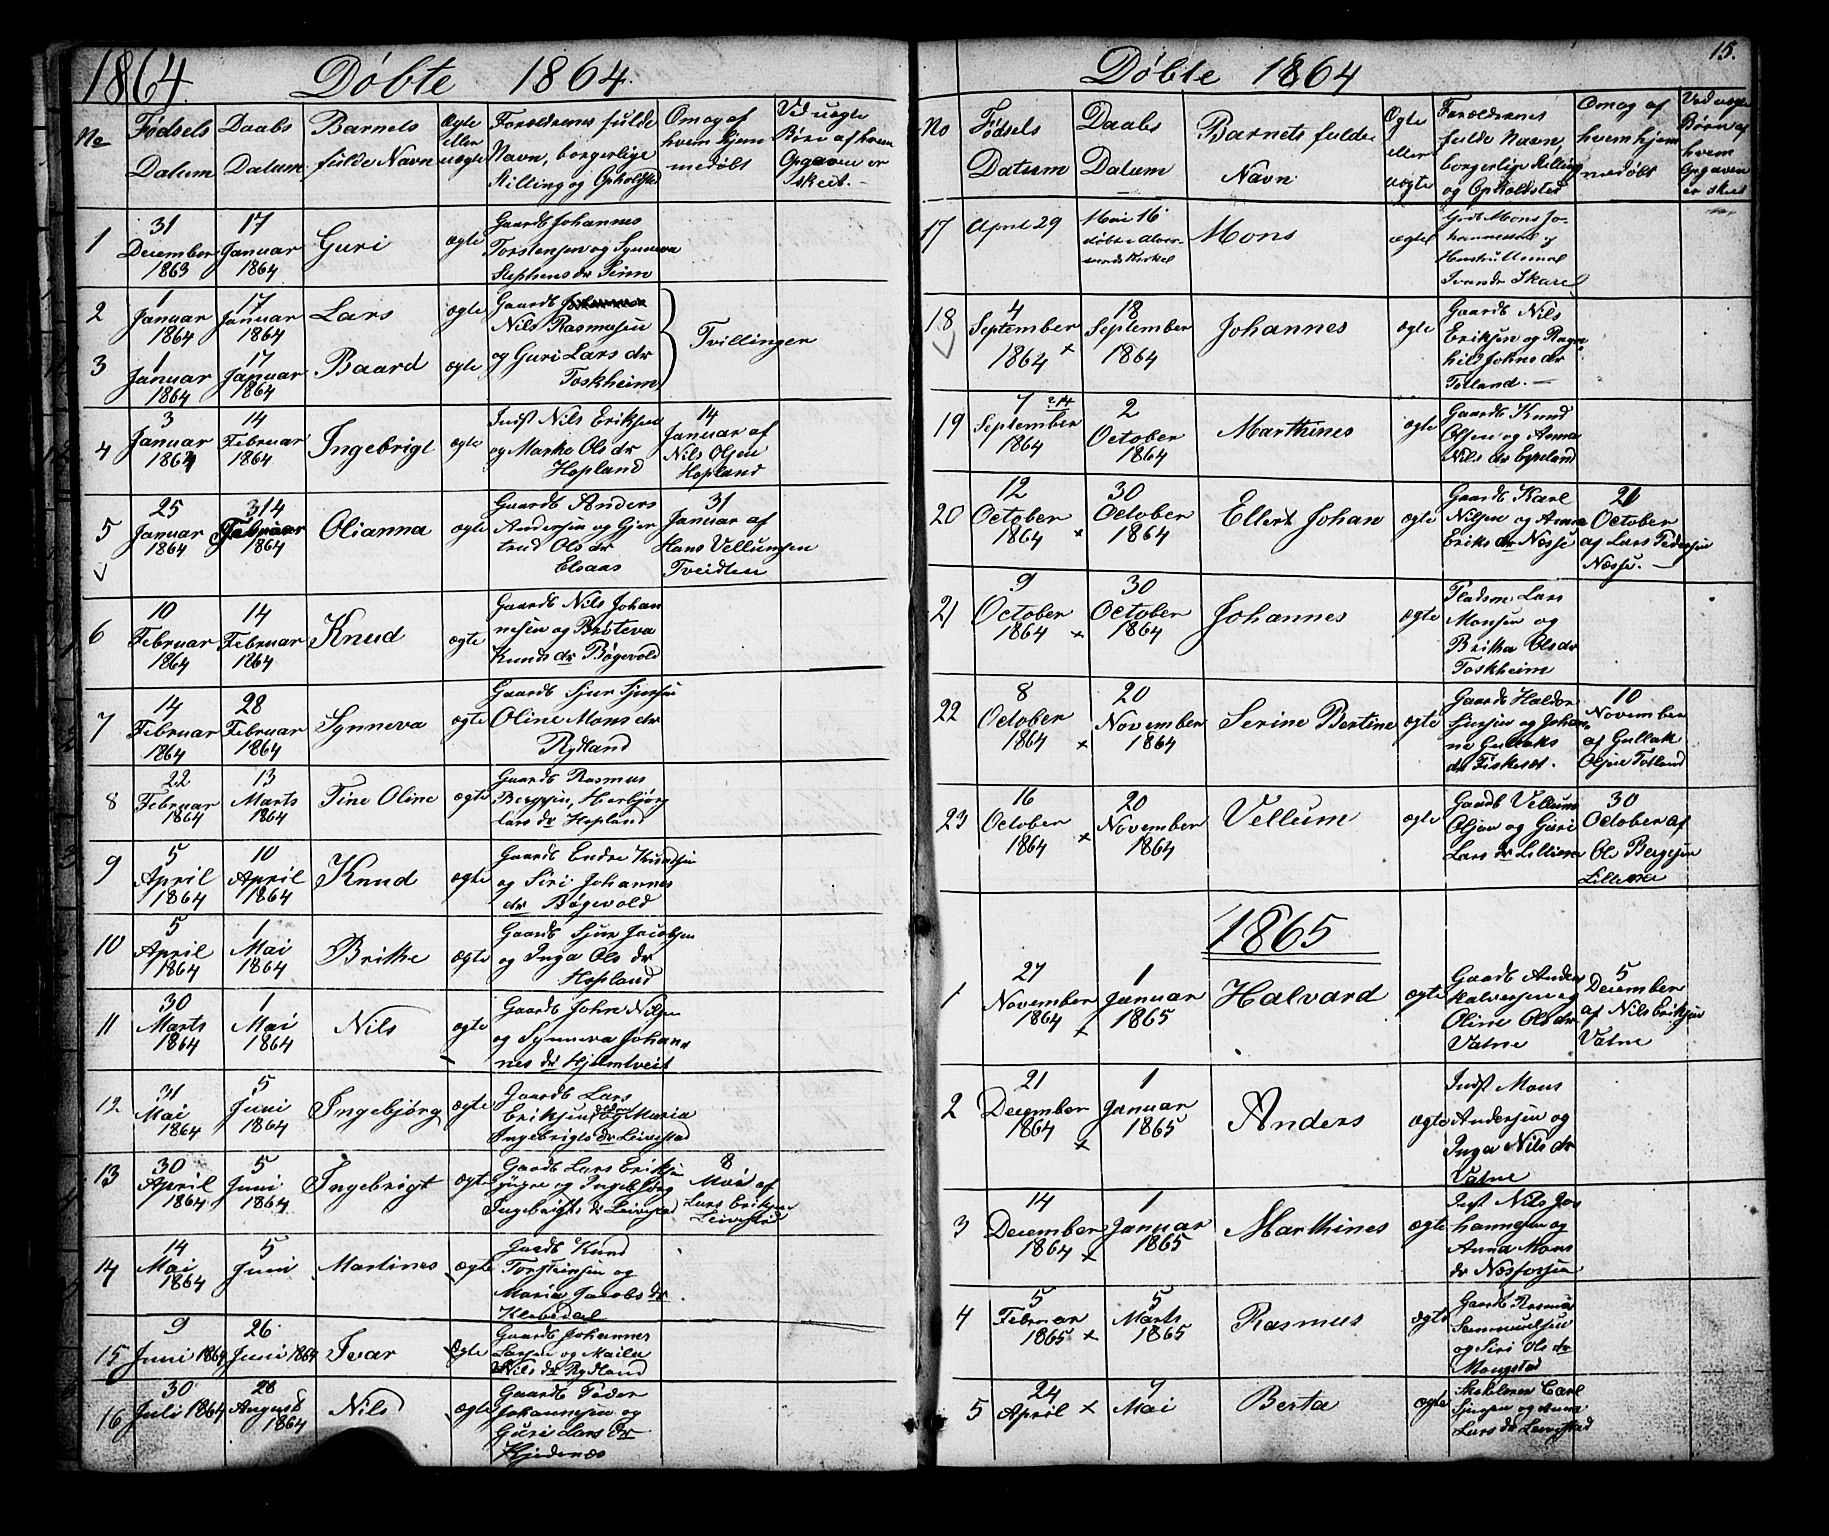 1864. Døbte 1864.
No Fødsels Datum Daabs Datum Barnets fulde Navn Ægte eller uægte Forældrenes fulde Navn, borgerlige Stilling og Opholdsted Om og af hvem hjemmedøbt Ved uægte Børn af hvem Opgaven er skeet.
1 31 December 1863 17 Januar 1864 Guri ægte Gaardb Johannes
Torstensen og Synneva
Stephens dr
2 1 Januar 1864 17 Januar 1864 Lars ægte Gaardb
Nils Rasmusen
3 1 Januar 1864 17 Januar 1864 Baard ægte og Guri Lars dr
Toskheim Tvillinger
4 3 Januar 1864 14 Februar 1864 Ingebrigt ægte Indst Nils Eriksen
og Marte Ols dr
Hopland
14 Januar af
Nils Olsen
Hopland
5 25 Januar 1864 1864 Olianna ægte Gaardb Anders
Andersen og Gjer
trud Ols dr
Elsaas
31 Januar af
Hans Vellumsen
Tveidten
6 10 Februar 1864 14 Februar 1864 Knud ægte Gaardb Nils Johan
nesen og
Knuds dr Bøgevold
7 14 Februar 1864 28 Februar 1864 Synneva ægte Gaardb Sjur Sjursen
Oline Mons dr
Rydland
8 22 Februar 1864 13 Marts 1864 Tine Oline ægte Gaardb Rasmus
Herbjørg
Lars dr Hopland
9 5 April 1864 10 April 1864 Knud ægte Gaardb Endre Knudsen
og Siri Johannes
dr Bøgevold
10 5 April 1864 1 Mai 1864 Brithe ægte Gaardb Sjur Jacobsen
og Inga Ols dr
Hopland
11 30 Marts 1864 1 Mai 1864 Nils ægte Gaardb John Nilsen
og Synneva Johan
nes dr Hjelmtveit
12 31 Mai 1864 5 Juni 1864 Ingebjørg ægte Gaardb Lars
Eriksen og Maria
Ingebrigts dr Leivestad
13 30 April 1864 5 Juni 1864 Ingebrigt ægte Gaardb Lars Eriksen
yngre og Ingebjørg
Ingebrigts dr Leivestad
8 Mai af
Lars Eriksen
Leivestad
14 14 Mai 1864 5 Juni Martines ægte Gaardb Knud
Torsteinsen og
Maria Jacobs dr
15 9 Juni 1864 26 Juni 1864 Ivar ægte Gaardb Johannes
Larsen og
Nils dr Rydland
16 30 Juli 1864 28 August 1864 Nils ægte Gaardb Peder
Johannesen og
Guri Lars dr
15.
Døbte 1864
No Fødsels Datum Daabs Datum Barnets fulde Navn Ægte eller uægte Forældrenes fulde Navn, borgerlige Stilling og Opholdsted Om og af hvem hjemmedøbt Ved uægte Børn af hvem Opgaven er skeet
17 April 29 Mai 16
døbt i Alver
sunds Kirke
Mons ægte Grdb Mons Jo-
hannessen og
Hustru
Skare
18 4 September 1864 x 18 September 1864 Johannes ægte Gaardb Nils
Eriksen og Ragn
hild Johns dr
Totland. —
19 7 September 1864 2 October 1864 Marthines ægte Gaardb Knud
Olsen og Anna
Nils dr
20 12 October 1864 x 30 October 1864 Ellert Johan ægte Gaardb Karl
Nilsen og Anna
Eriks dr Næsse
October
af Lars Pedersen
Næsse. —
21 9 October 1864 x 30 October 1864 Johannes ægte Pladsm Lars
Monsen og
Britha Ols dr
Toskheim
22 8 October 1864 x 20 November 1864 Serine Bertine ægte Gaardb Haldor
Sjursen og Johan
ne Gullaks
dr Fiskeset.
10 November
af Gullak
Olsen Totland
23 16 October 1864 x 20 November 1864 Vellum ægte Gaardb Vellum
Olsen og Guri
Lars dr
30 October af
Ole Bergesen
1865
1 27 November 1864 x 1 Januar 1865 Halvard ægte Gaardb Anders
Halvorsen og
Oline Ols dr
Vatne
5 December
af Nils Eriksen
Vatne
2 21 December 1864 x 1 Januar 1865 Anders ægte Indst Mons
Andersen og
Inga Nils dr
Vatne
3 14 December 1864 x 1 Januar 1865 Marthines ægte Indst Nils Jo
hannesen og
Anna Mons
dr
4 5 Februar 1865 x 5 Marts 1865 Rasmus ægte Gaardb Rasmus
Sammuelsen
og Siri Ols dr
Mongstad
5 24 April x 7 Mai Berta ægte Skolelærer Carl
og Anna
Lars dr Leivestad